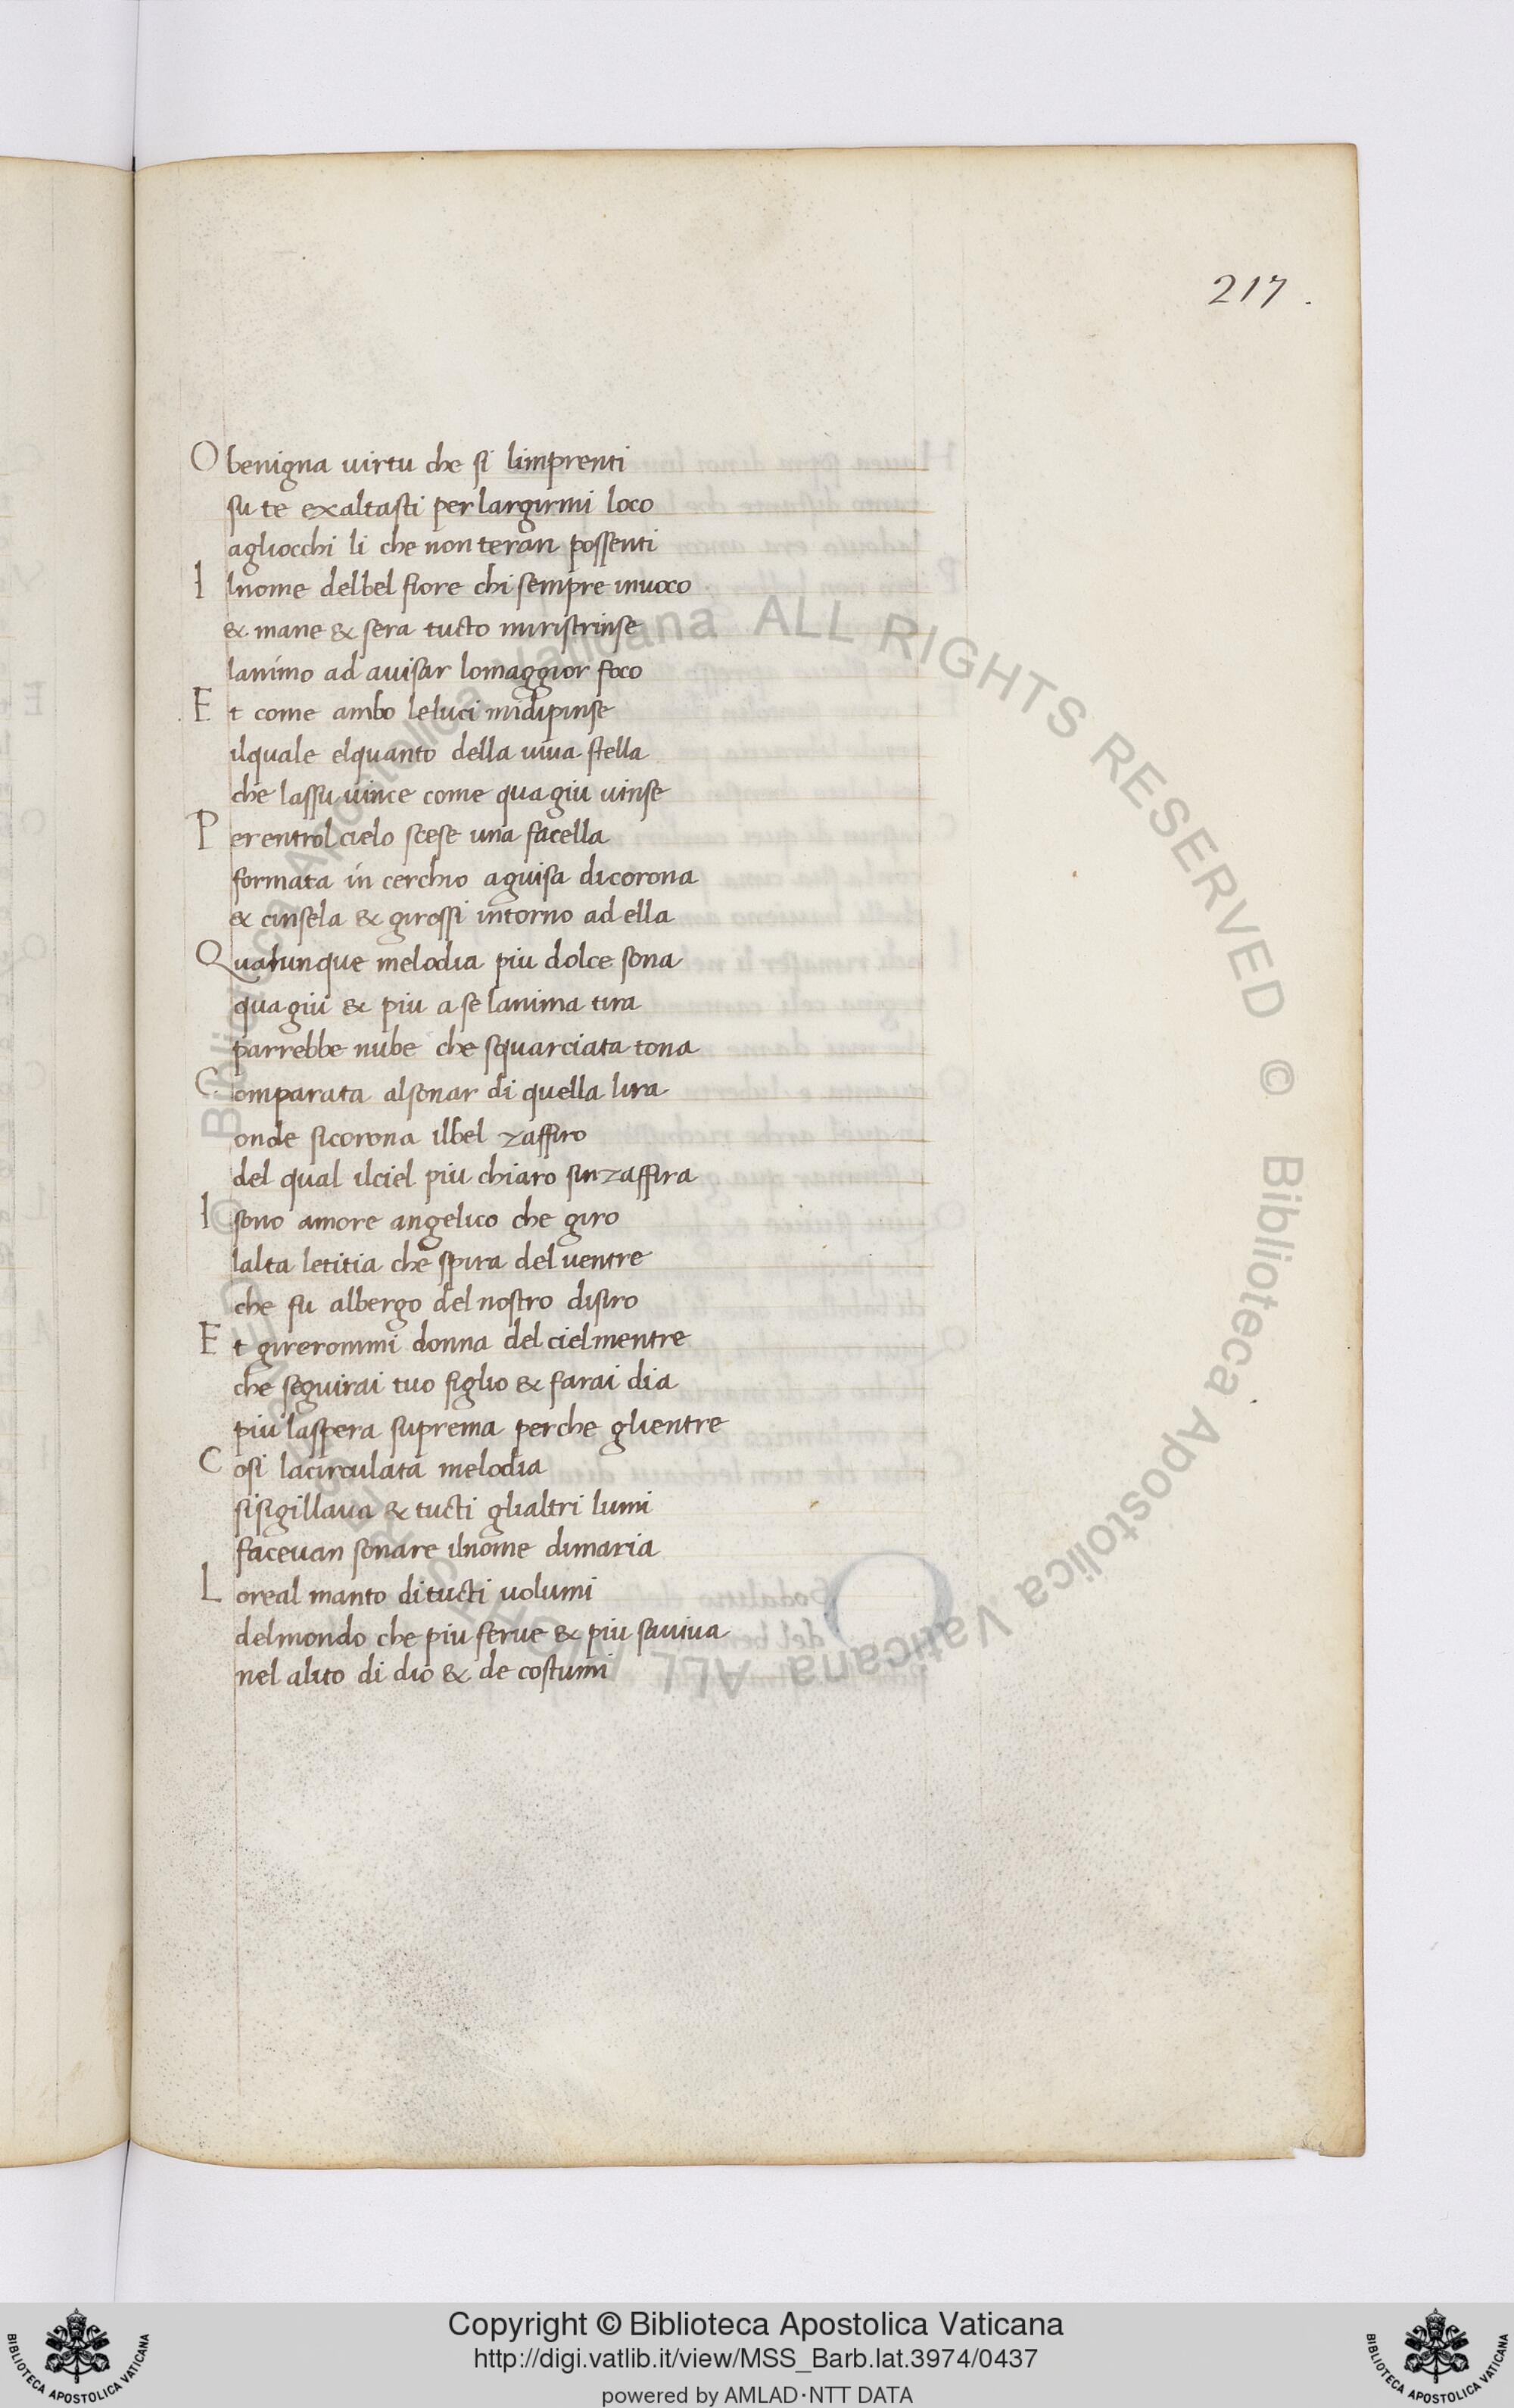 217.
O benigna uirtu che si limprenti
su te exaltasti per largirmi loco
agliocchi li che non teran possenti
I lnome delbel fiore chi sempre inuoco
& mane & sera tucto miristrinse
lanimo ad auisar lomaggior foco
E t come ambo leluci midipinse
ilquale elquanto della uiua stella
che lassu uince come qua giu uinse
P erentrol cielo scese una facella
formata in cerchio aguisa dicorona
& cinsela & girossi intorno ad ella
Q ualunque melodia piu dolce sona
qua giu & piu a se lanima tira
parrebbe nube che squarciata tona
C omparata alsonar di quella lira
onde sicorona ilbel zaffiro
del qual ilciel piu chiaro sinzaffira
I sono amore angelico che giro
lalta letitia che spira del uentre
che fu albergo del nostro disiro
E t girerommi donna del ciel mentre
che seguirai tuo figlio & farai dia
piu laspera suprema perche glientre
C osi lacirculata melodia
sisigillaua & tucti glialtri lumi
faceuan sonare ilnome dimaria
L oreal manto di tucti uolumi
delmondo che piu ferue & piu sauiua
nel alito di dio & de costumi
© Biblioteca Apostolica Vaticana ALL RIGHTS RESERVED © Biblioteca Apostolica Vaticana ALL RIGHTS RESERVED
Copyright © Biblioteca Apostolica Vaticana
http://digi.vatlib.it/view/MSS_Barb.lat.3974/0437
powered by AMLAD·NTT DATA
BIBLIOTECA APOSTOLICA VATICANA
BIBLIOTECA APOSTOLICA VATICANA